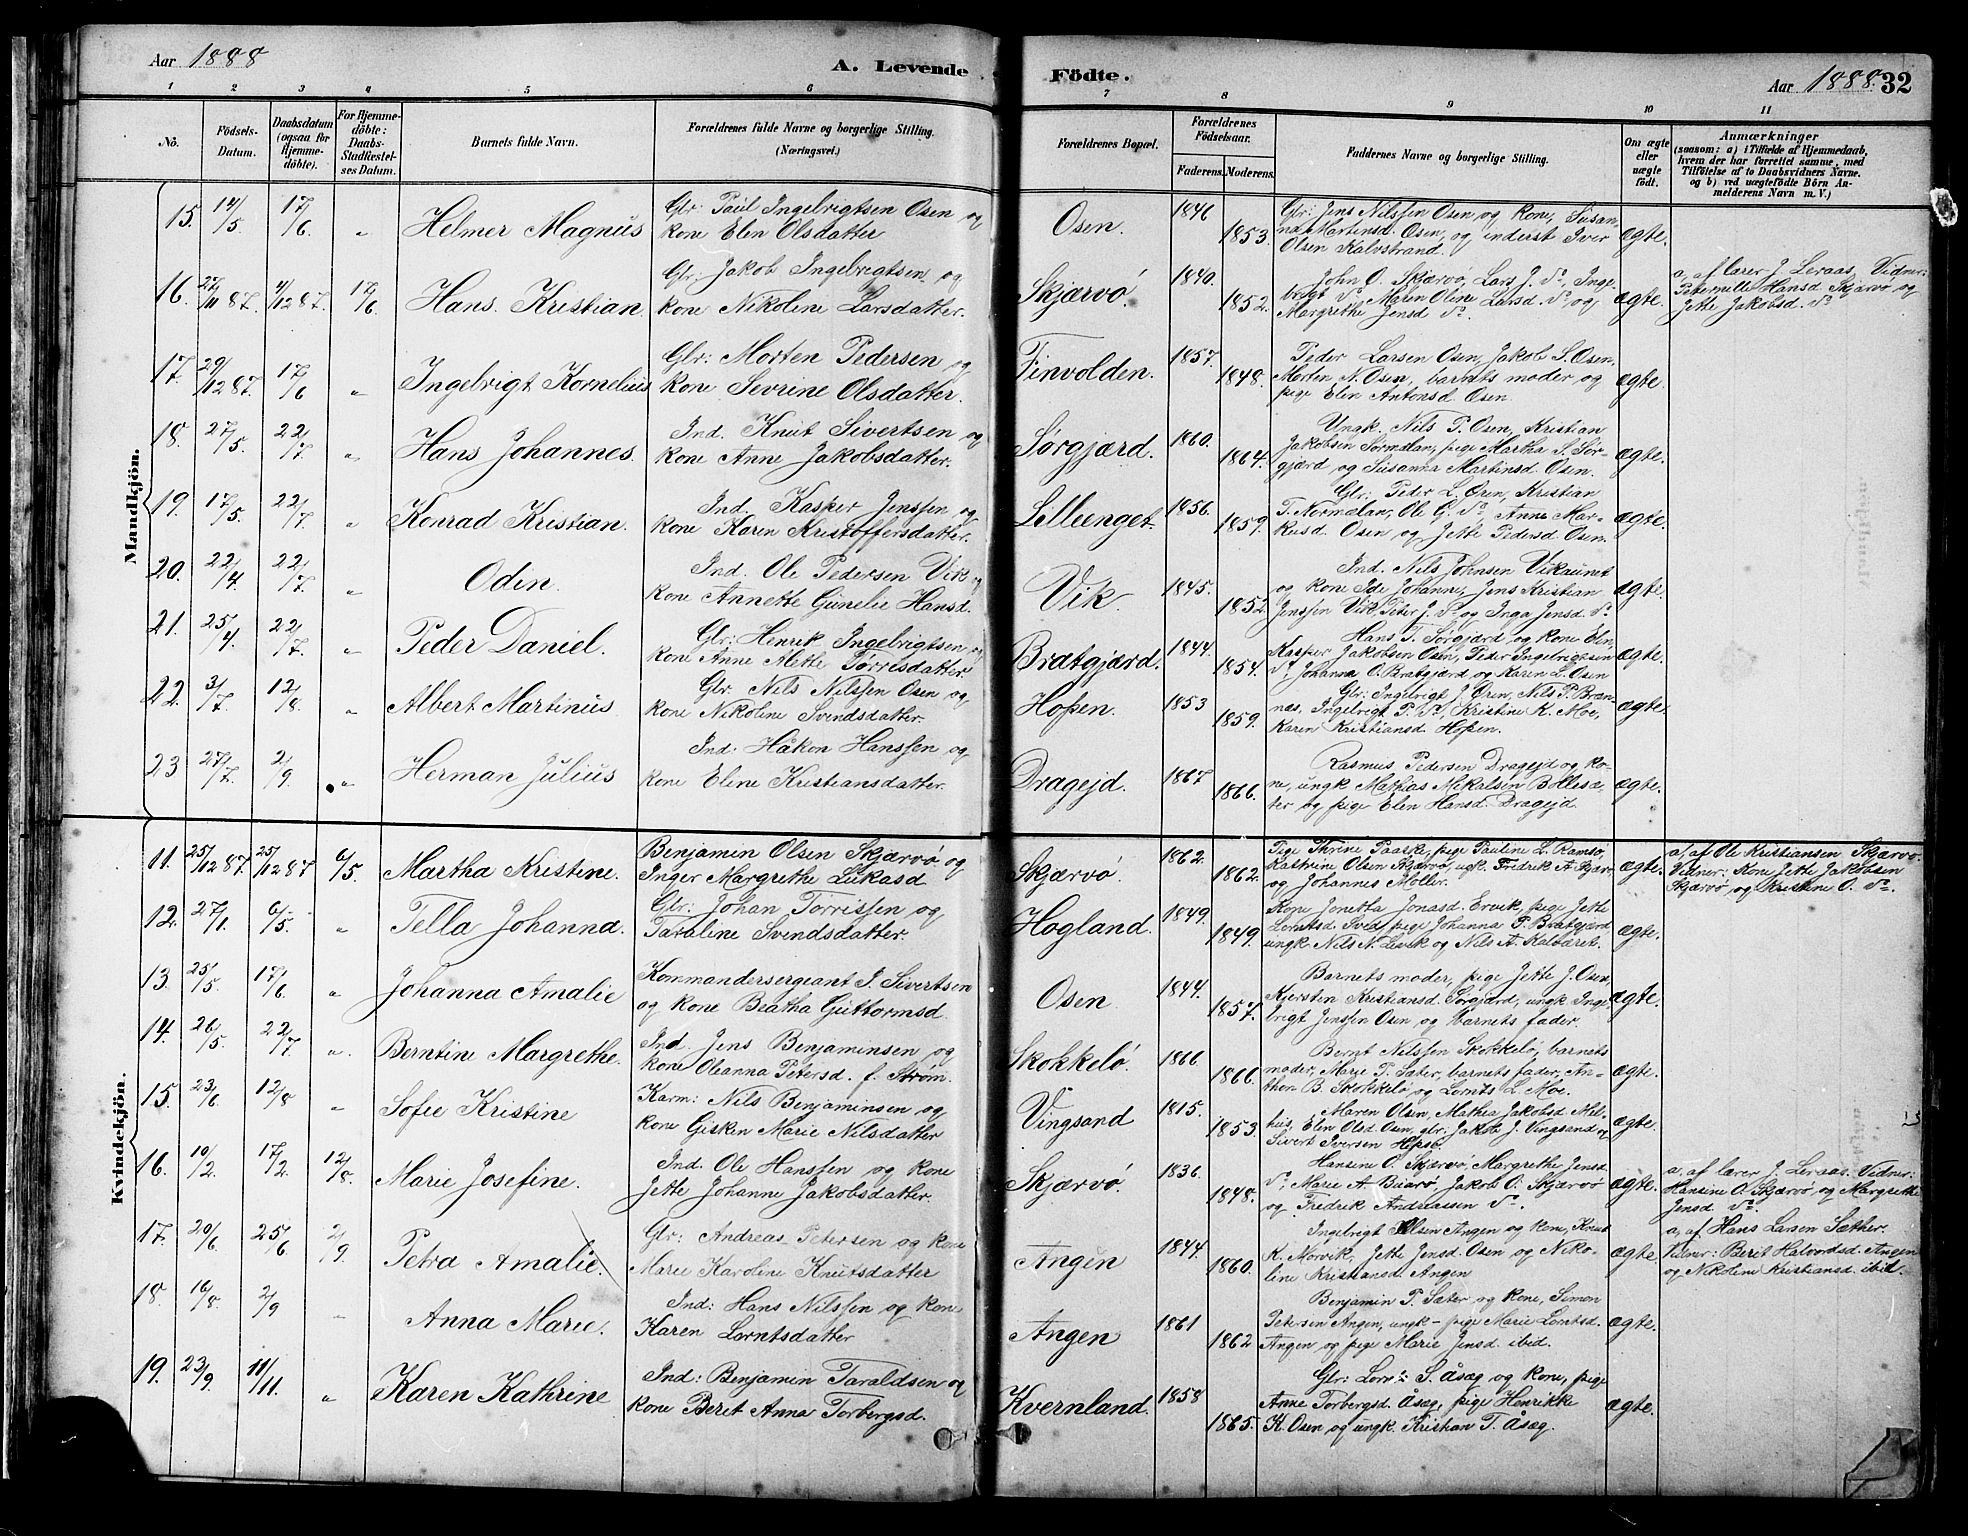 Aar 1888
A. Levende
Födte.
Aar 1888. 32
1 2 3 4 5 6 7 8 9 10 11
No.
Födsels-
Datum.
Daabsdatum
(ogsaa for
Hjemme-
döbte).
For Hjemme-
döbte:
Daabs-
Stadfæstel-
ses Datum.
Barnets fulde Navn.
Forældrenes fulde Navne og borgerlige Stilling.
(Næringsvei.)
Forældrenes Bopæl.
Forældrenes
Födselsaar.
Faderens. Moderens.
Faddernes Navne og borgerlige Stilling.
Om ægte
eller
uægte
født.
Anmærkninger
(saasom: a) i Tilfælde af Hjemmedaab,
hvem der har forrettet samme, med
Tilföielse af to Daabsvidners Navne.
og b) ved uægtefödte Börn An-
melderens Navn m. V.)
Mandkjön.
15. 14/5 17/6 " Helmer Magnus
Glr: Paul Ingebrigtsen Osen og
kone Elen Olsdatter
Osen. 1846 1853.
Glr: Jens Nilssen Osen og kone, Susan-
na Martinsd. Osen, og inderst Iver
Olsen Kalvstrand.
ægte.
16. 27/11 87. 4/12 87. 17/6 Hans Kristian
Glr: Jakob Ingebrigtsen og
kone Nikoline Larsdatter.
Skjærvö. 1840. 1852.
John O. Skjærvö, Lars J. do, Inge-
brigt do, Maren Oline Larsd. do, og
Margrethe Jensd do.
ægte.
a, af lærer J. Leraas, Vidner:
Peternille Hansd. Skjærvö og
Jette Jakobsd. do
17. 29/12 87. 17/6 " Ingebrigt Kornelius
Glr: Morten Pedersen og
kone Sevrine Olsdatter.
Finvolden. 1857. 1848.
Peder Larsen Osen, Jakob S. Osen,
Morten N. Osen, barnets moder og
pige Elen Antonsd Osen.
ægte.
18. 27/5 22/7 " Hans Johannes.
Ind. Knut Sivertsen og
kone Anne Jakobsdatter.
Sørgjærd. 1860. 1864.
Ungk. Nils P. Osen, Kristian
Jakobsen Sørmelan, pige Martha S. Sør-
gjærd og Susanna Martinsd. Osen.
ægte.
19. 17/5 22/7 " Konrad Kristian.
Ind. Kasper Jenssen og
kone Karen Kristoffersdatter.
Lilleenget. 1856. 1859.
Glr: Peder L. Øren, Kristian
T. Normelan, Ole G. do Anne Mar-
kusd. Osen og Jette Pedersd Osen.
ægte.
20. 22/4 22/7 " Odin.
Ind. Ole Pedersen Vik og
kone Annette Gunelie Hansd.
Vik. 1845. 1852.
Ind. Nils Johnsen Vikaunet
og kone Ide Johanne, Jens Kristian
Jenssen Vik, Peter J. do og Inga Jensd. do
ægte.
21. 25/4 22/7 " Peder Daniel.
Glr: Henrik Ingebrigtsen og
kone Anne Mette Tørrisdatter.
Bratgjærd. 1844. 1854.
Hans T. Sørgjærd og kone Elen
Kasper Jakobsen Osen, Peder Ingebrigtsen
do, Johanna O. Bratgjærd og Karen L. Osen
ægte.
22. 3/7 12/8 " Albert Martinus.
Glr. Nils Nilssen Osen og
kone Nikoline Svendsdatter.
Hopen. 1853 1859.
Glr: Ingebrigt J. Øren, Nils P. Bran-
næs, Ingebrigt P. do, Kristine K. Moe,
Karen Kristiansd. Hopen.
ægte.
23 27/7 2/9 " Herman Julius
Ind: Håkon Hanssen og
kone Eline Kristiansdatter.
Dragejd. 1867 1866.
Rasmus Pedersen Dragejd og ko-
ne, ungk Mathias Mikalsen Bollesæ-
ter og pige Elen Hansd. Dragejd.
ægte.
Kvindekjön.
11. 25/12 87. 25/12 87 6/5. Martha Kristine.
Benjamin Olsen Skjærvö og
Inger Margrethe Lukasd
Skjærvö. 1862. 1862.
Pige Thrine Paaske, pige Pauline L. Ramsø,
Kathrine Olsen Skjærvö, ugk. Fredrik A. Skjærvö
og Johannes Møller.
ægte.
a, af Ole Kristiansen Skjærvö.
Vidner: Kone Jette Jakobsen
Skjærvö, og Kristine O. do.
12. 27/1 6/5. " Tella Johanna.
Glr: Johan Tørrissen og
Taraline Svendsdatter.
Hogland. 1849. 1849.
Kone Jonetta Jonasd. Ervik, pige Jette
Lorntsd. Sved, pige Johanna P. Bratgjærd
ungk Nils N. Levik og Nils A. Kalbaret.
ægte.
13. 25/5 17/6 " Johanna Amalie
Kommandersergeant J. Sivertsen
og kone Beatha Guttormsd.
Osen 1844. 1857.
Barnets moder, pige Jette J. Osen,
Kjersten Kristiansd. Sørgjærd, ungk Inge-
brigt Jenssen Osen og Barnets fader.
ægte.
14. 26/5 22/7 " Berntine Margrethe.
Ind. Jens Benjaminsen og
kone Oleanna Petersd. f. Strøm.
Skokkelö. 1866 1866.
Bernt Nilssen Skokkelö, barnets
moder, Marie P. Sæter, barnets fader, An-
thon B. Skokkelö og Lornts L. Moe.
ægte.
15. 23/6 12/8 " Sofie Kristine
Karm: Nils Benjaminsen og
kone Gisken Marie Nilsdatter
Vingsand 1815. 1853.
Maren Olsen, Mathea Jakobsd Mel-
hus, Elen Olsd Osen, glr: Jakob J. Vingsand og
Sivert Iversen Hepsø.
ægte.
16. 10/2 17/2 12/8. Marie Josefine.
Ind. Ole Hanssen og kone
Jette Johanne Jakobsdatter.
Skjærvö. 1836. 1848.
Hansine O. Skjærvö, Margrethe Jensd.
do, Marie A. Buarø, Jakob O. Skjærvö
og Fredrik Andreassen do.
ægte.
a, af lærer J. Leraas. Vidner:
Hansine O. Skjærvö, og Margrethe
Jensd do.
17. 20/6 25/6 2/9. Petra Amalie.
Glr: Andreas Petersen og kone
Marie Karoline Knutsdatter
Angen 1844. 1860.
Ingebrigt Olsen Angen og kone, Knut
K. Norvik, Jette Jensd. Osen og Niko-
line Kristiansd. Angen
ægte.
a, af Hans Larsen Sæther.
Vidner: Berit Halvordsd. Angen
og Nikoline Kristiansd. ibid.
18. 16/8. 2/9 " Anna Marie.
Ind: Hans Nilssen og kone
Karen Lorntsdatter
Angen 1861 1862
Benjamin P. Sæter og kone, Simon
Petersen Angen, ungk - pige Marie Lorntsd.
Angen og pige Marie Jensd. ibid.
ægte.
19. 23/9 11/11. " Karen Kathrine
Ind: Benjamin Taraldsen og
kone Berit Anna Torbergsd.
Kvernland. 1858 1865.
Glr: Lor: S. Åsæg og kone, pige
Anne Torbergsd. Åsæg, pige Henrikke
K. Osen og ungk. Kristian T. Åsæg.
ægte.